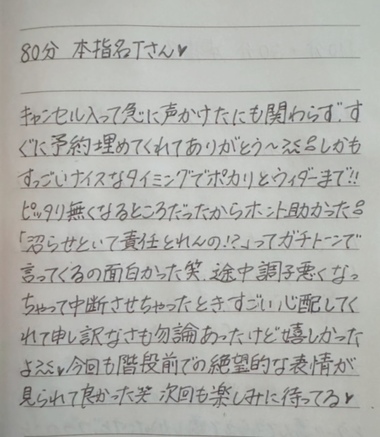 80分 本指名Tさん♥
キャンセル入って急に声かけたにも関わらず、す
ぐに予約埋めてくれてありがとう〜 しかも
すっごいナイスなタイミングでポカリとウィダーまで!!
ピッタリ無くなるところだったからホント助かった
「沼らせといて責任とれんの!?」ってガチトーンで
言ってくるの面白かった笑 途中調子悪くなっ
ちゃって中断させちゃったとき、すごい心配してく
れて申し訳なさも勿論あったけど嬉しかった
よ♥今回も階段前での絶望的な表情が
見られて良かった笑 次回も楽しみに待ってる♥